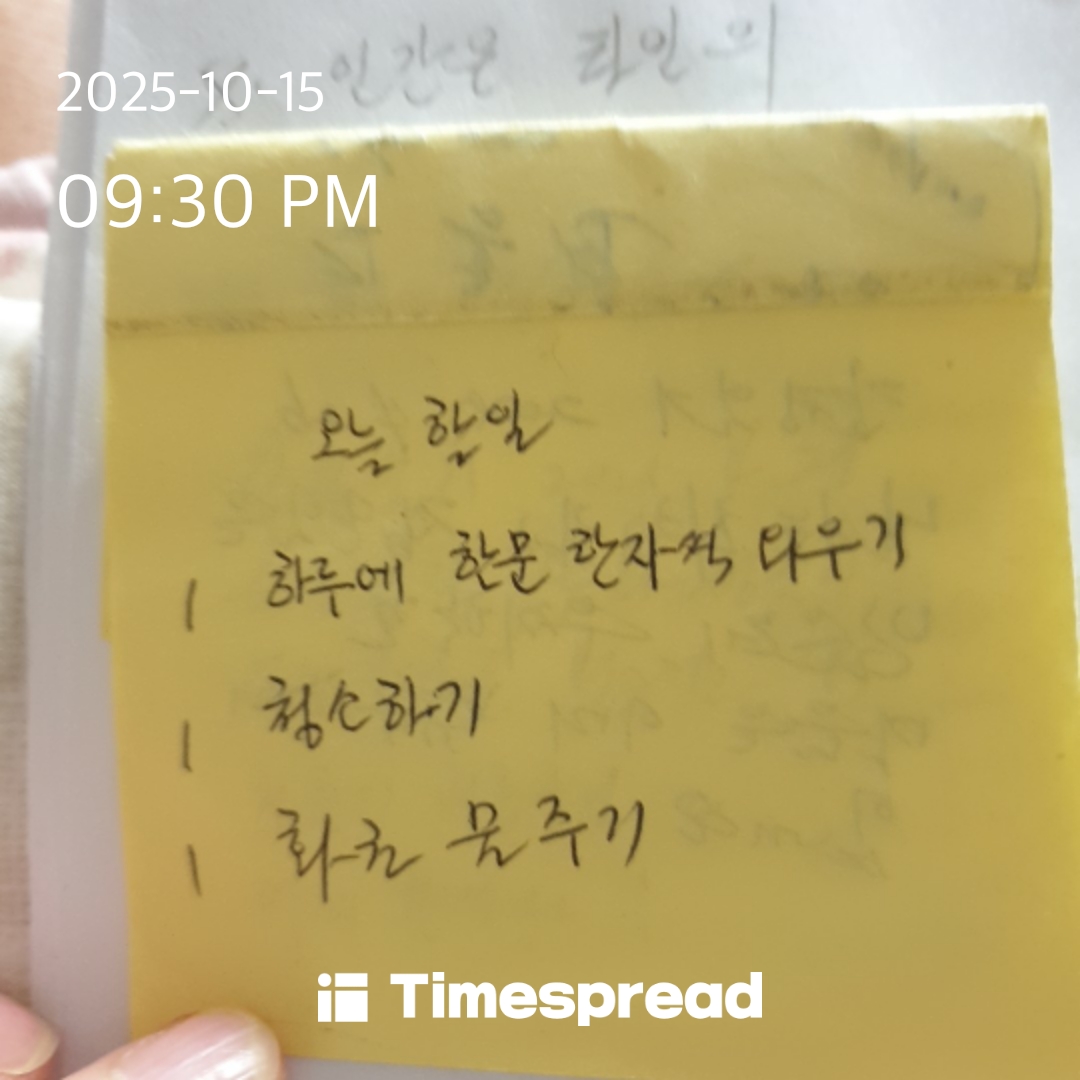 인간은 타인의
2025-10-15
09:30 PM
오늘 할일
1 하루에 한문 한자씩 외우기
1 청소하기
1 화분 물주기
Timespread